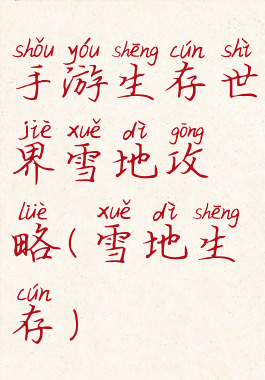 shǒu yóu shēng cún shì
手游生存世
jiè xuě dì gōng
界雪地攻
lüè xuě dì shēng
略(雪地生
cún
存)